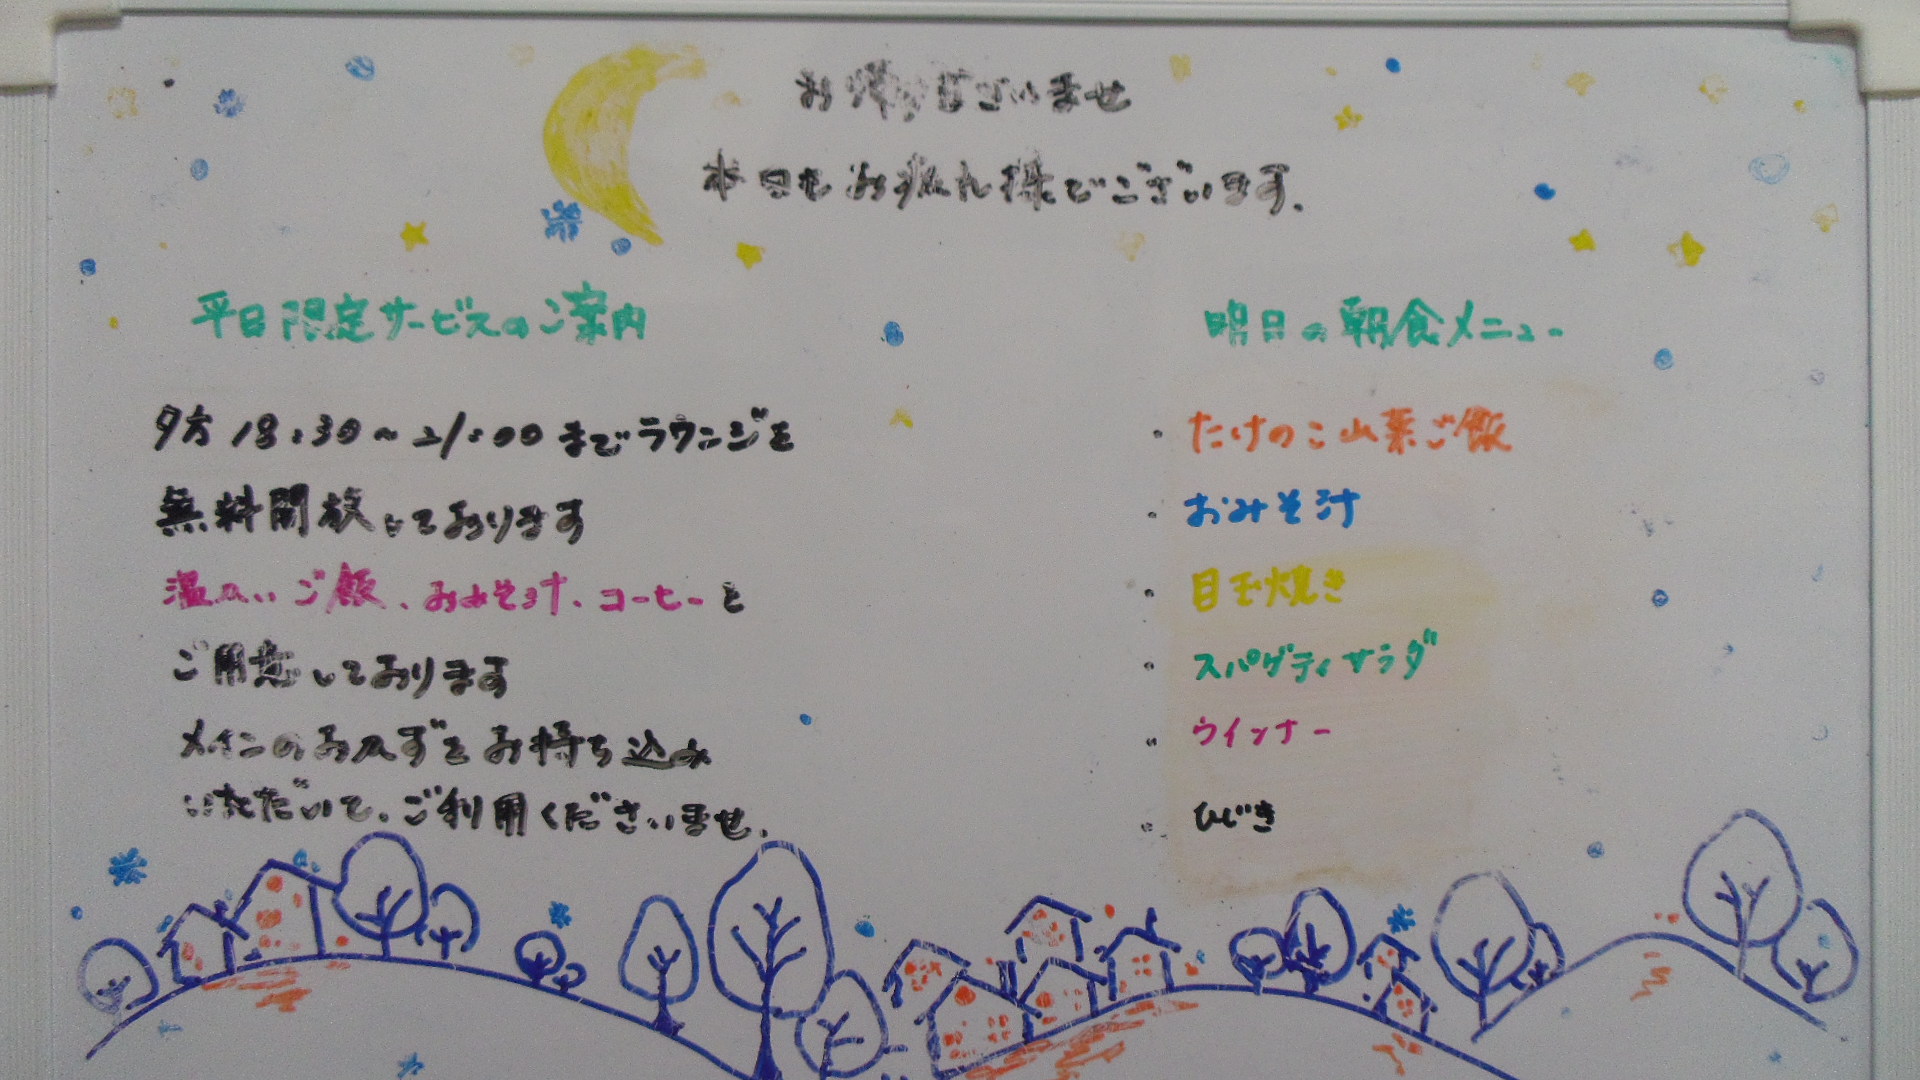 お帰りなさいませ
本日もお疲れ様でございます.
平日限定サービスのご案内
夕方 18:30~21:00 までラウンジを
無料開放しております
温かいご飯、おみそ汁、コーヒーを
ご用意しております
メインのおかずをお持ち込み
いただいて、ご利用くださいませ.
明日の朝食メニュー
・たけのこ山菜ご飯
・おみそ汁
・目玉焼き
・スパゲティサラダ
・ウインナー
・ひじき